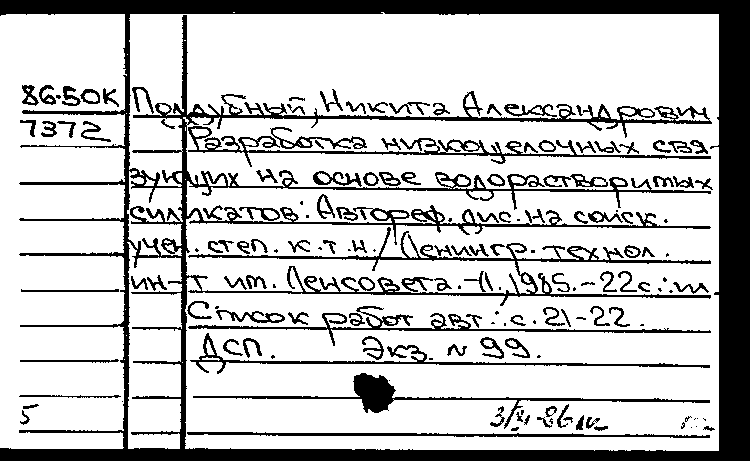 86-50К Поддубный, Никита Александрович.
7372 Разработка низкощелочных свя-
зующих на основе водорастворимых
силикатов: Автореф. дис. на соиск.
учен. степ. к.т.н. / Ленингр. технол.
ин-т им. Ленсовета. -Л., 1985. - 22 с.: ил.
Список работ авт.: с. 21-22.
ДСП. Экз. № 99.
5